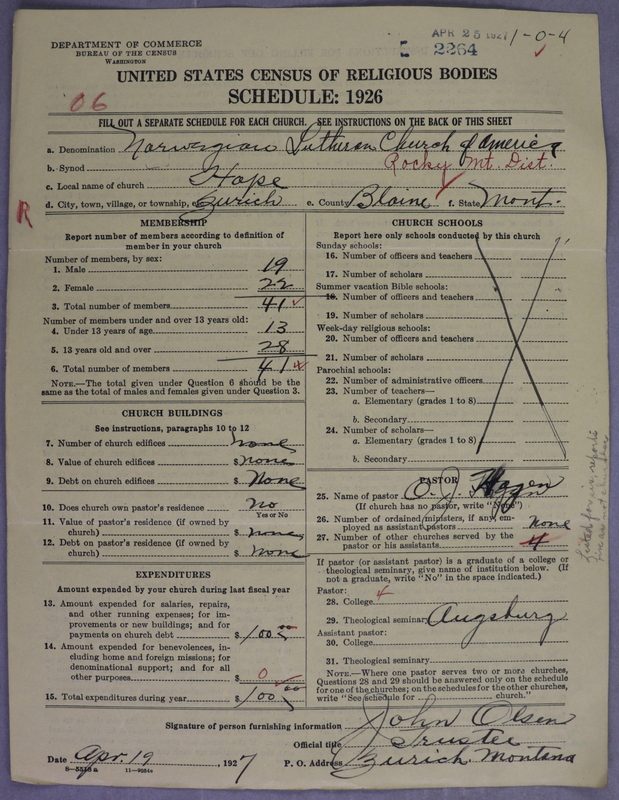 DEPARTMENT OF COMMERCE
BUREAU OF THE CENSUS
WASHINGTON
APR 25 1927
2264
1-0-4
UNITED STATES CENSUS OF RELIGIOUS BODIES
SCHEDULE: 1926
06
FILL OUT A SEPARATE SCHEDULE FOR EACH CHURCH. SEE INSTRUCTIONS ON THE BACK OF THIS SHEET
a. Denomination Norwegian Lutheran Church of America
b. Synod Rocky Mt. Dist.
c. Local name of church Hope
d. City, town, village, or township, etc. Zurich e. County Blaine f. State Mont.
R
MEMBERSHIP
Report number of members according to definition of member in your church
Number of members, by sex:
1. Male 19
2. Female 22
3. Total number of members 41
Number of members under and over 13 years old:
4. Under 13 years of age 13
5. 13 years old and over 28
6. Total number of members 41
NOTE.—The total given under Question 6 should be the same as the total of males and females given under Question 3.
CHURCH BUILDINGS
See instructions, paragraphs 10 to 12
7. Number of church edifices none
8. Value of church edifices $ none
9. Debt on church edifices $ None
10. Does church own pastor's residence No
Yes or No
11. Value of pastor's residence (if owned by church) $ none
12. Debt on pastor's residence (if owned by church) $ none
EXPENDITURES
Amount expended by your church during last fiscal year
13. Amount expended for salaries, repairs, and other running expenses; for improvements or new buildings; and for payments on church debt $ 100 00
14. Amount expended for benevolences, including home and foreign missions; for denominational support; and for all other purposes $ 0
15. Total expenditures during year $ 100 00
CHURCH SCHOOLS
Report here only schools conducted by this church
Sunday schools:
16. Number of officers and teachers
17. Number of scholars
Summer vacation Bible schools:
18. Number of officers and teachers
19. Number of scholars
Week-day religious schools:
20. Number of officers and teachers
21. Number of scholars
Parochial schools:
22. Number of administrative officers
23. Number of teachers—
a. Elementary (grades 1 to 8)
b. Secondary
24. Number of scholars—
a. Elementary (grades 1 to 8)
b. Secondary
PASTOR
25. Name of pastor O. J. Hagen
(If church has no pastor, write "None")
26. Number of ordained ministers, if any, employed as assistant pastors none
27. Number of other churches served by the pastor or his assistants 4
If pastor (or assistant pastor) is a graduate of a college or theological seminary, give name of institution below. (If not a graduate, write "No" in the space indicated.)
Pastor:
28. College
29. Theological seminary Augsburg
Assistant pastor:
30. College
31. Theological seminary
NOTE.—Where one pastor serves two or more churches, Questions 28 and 29 should be answered only on the schedule for one of the churches; on the schedules for the other churches, write "See schedule for church."
Signature of person furnishing information John Olsen
Official title Trustee
Date Apr. 19, 1927 P. O. Address Zurich, Montana
8-5518 a 11-9364